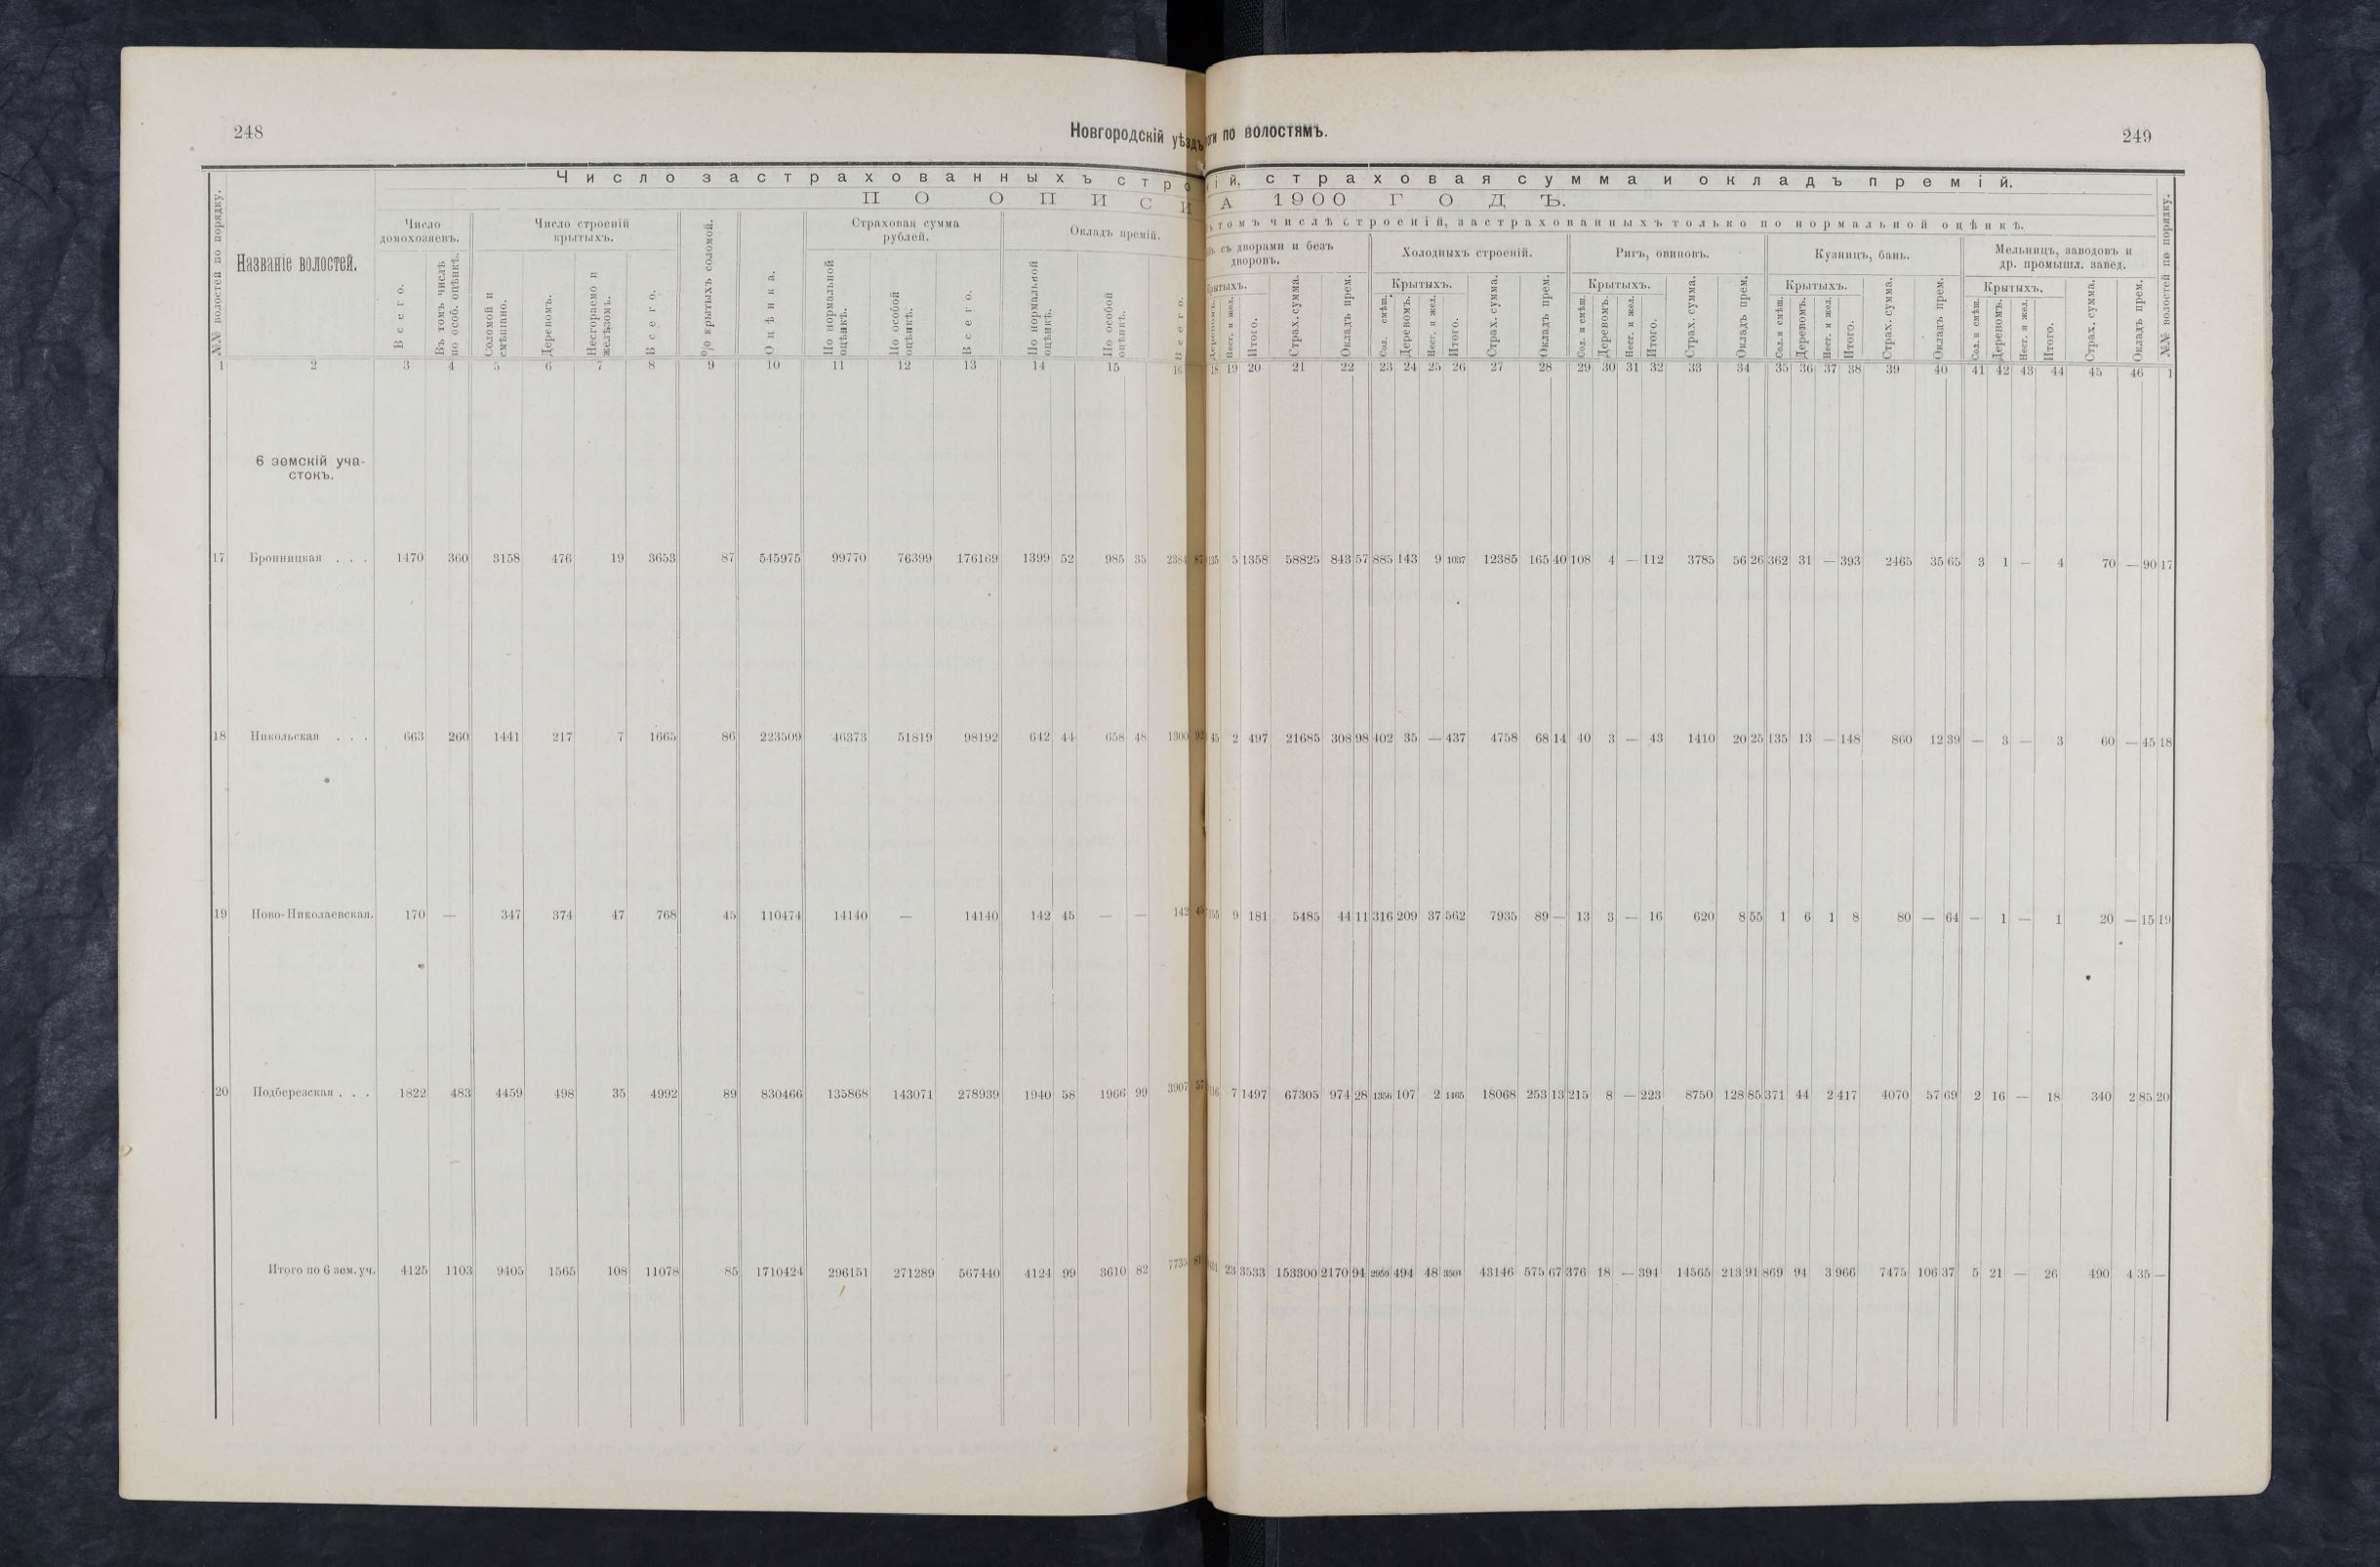 248
Новгородскій уѣздъ
Число застрахованныхъ стро
ПО ОПИСИ
№№ волостей по порядку.
Названіе волостей.
Число домохозяевъ.
Число строеній крытыхъ.
% крытыхъ соломой.
Оцѣнка.
Страховая сумма рублей.
Окладъ премій.
Всего.
Въ томъ числѣ по особ. оцѣнкѣ.
Соломой и смѣшано.
Деревомъ.
Несгораемо и желѣзомъ.
Всего.
По нормальной оцѣнкѣ.
По особой оцѣнкѣ.
Всего.
По нормальной оцѣнкѣ.
По особой оцѣнкѣ.
Всего.
1 2 3 4 5 6 7 8 9 10 11 12 13 14 15 16
6 земскій уча-
стокъ.
17 Бронницкая . . . 1470 360 3158 476 19 3653 87 545975 99770 76399 176169 1399 52 985 35 2384 87
18 Никольская . . . 663 260 1441 217 7 1665 86 223509 46373 51819 98192 642 44 658 48 1300 92
19 Ново-Николаевская. 170 — 347 374 47 768 45 110474 14140 — 14140 142 45 — — 142 45
20 Подберезская . . . 1822 483 4459 498 35 4992 89 830466 135868 143071 278939 1940 58 1966 99 3907 57
Итого по 6 зем. уч. 4125 1103 9405 1565 108 11078 85 1710424 296151 271289 567440 4124 99 3610 82 7735 81
249
по волостямъ.
ій, страховая сумма и окладъ премій.
А 1900 ГОДЪ.
томъ числѣ строеній, застрахованныхъ только по нормальной оцѣнкѣ.
съ дворами и безъ дворовъ.
Холодныхъ строеній.
Ригъ, овиновъ.
Кузницъ, бань.
Мельницъ, заводовъ и др. промышл. завед.
№№ волостей по порядку.
Крытыхъ.
Крытыхъ.
Крытыхъ.
Крытыхъ.
Деревомъ. Несг. и жел. Итого. Страх. сумма. Окладъ прем.
Сол. смѣш. Деревомъ. Несг. и жел. Итого. Страх. сумма. Окладъ прем.
Сол. и смѣш. Деревомъ. Несг. и жел. Итого. Страх. сумма. Окладъ прем.
Сол. и смѣш. Деревомъ. Несг. и жел. Итого. Страх. сумма. Окладъ прем.
Сол. и смѣш. Деревомъ. Несг. и жел. Итого. Страх. сумма. Окладъ прем.
18 19 20 21 22 23 24 25 26 27 28 29 30 31 32 33 34 35 36 37 38 39 40 41 42 43 44 45 46 1
5 1358 58825 843 57 885 143 9 1037 12385 165 40 108 4 — 112 3785 56 26 362 31 — 393 2465 35 65 3 1 — 4 70 — 90 17
45 2 497 21685 308 98 402 35 — 437 4758 68 14 40 3 — 43 1410 20 25 135 13 — 148 860 12 39 — 3 — 3 60 — 45 18
9 181 5485 44 11 316 209 37 562 7935 89 — 13 3 — 16 620 8 55 1 6 1 8 80 — 64 — 1 — 1 20 — 15 19
7 1497 67305 974 28 1356 107 2 1465 18068 253 13 215 8 — 223 8750 128 85 371 44 2 417 4070 57 69 2 16 — 18 340 2 85 20
23 3533 153300 2170 94 2959 494 48 3501 43146 575 67 376 18 — 394 14565 213 91 869 94 3 966 7475 106 37 5 21 — 26 490 4 35 —